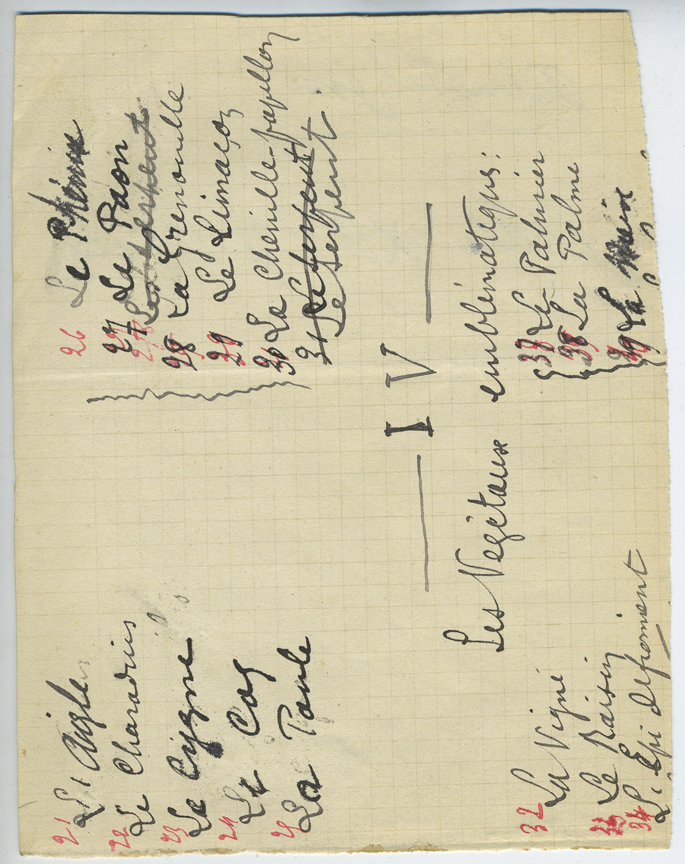 21 L'Aigle
22 Le Charadrius
23 Le Cygne
24 Le Coq
25 La Poule
26 Le Phénix
27 Le Paon
28 La Grenouille
29 Le Limaçon
30 La Chenille-papillon
31 Le Serpent
Le Serpent.
— IV —
Les Végétaux emblématiques:
32 La Vigne
33 Le Raisin
34 L'Epi de froment
37 Le Palmier
38 La Palme
39 La